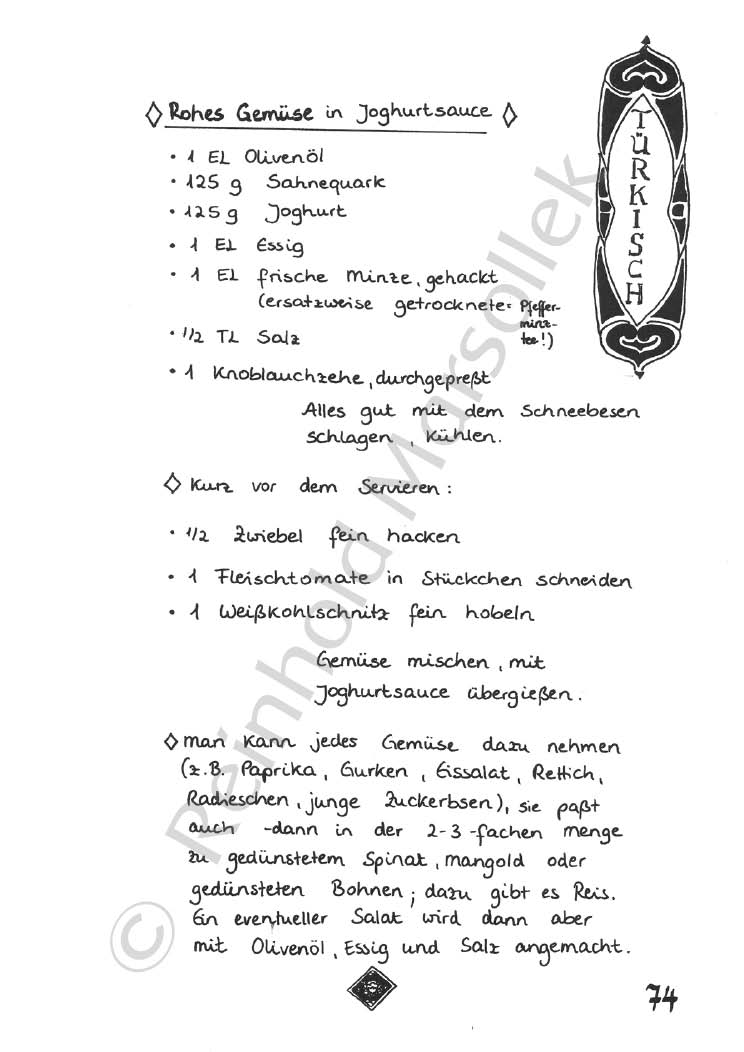 ◊ Rohes Gemüse in Joghurtsauce ◊
TÜRKISCH
• 1 EL Olivenöl
• 125 g Sahnequark
• 125 g Joghurt
• 1 EL Essig
• 1 EL frische Minze, gehackt
(ersatzweise getrocknete = Pfeffer-
minz-
tee!)
• 1/2 TL Salz
• 1 Knoblauchzehe, durchgepreßt
Alles gut mit dem Schneebesen
schlagen, kühlen.
◊ Kurz vor dem Servieren:
• 1/2 Zwiebel fein hacken
• 1 Fleischtomate in Stückchen schneiden
• 1 Weißkohlschnitz fein hobeln
Gemüse mischen, mit
Joghurtsauce übergießen.
◊ man kann jedes Gemüse dazu nehmen
(z.B. Paprika, Gurken, Eissalat, Rettich,
Radieschen, junge Zuckerbsen), sie paßt
auch - dann in der 2-3-fachen menge
zu gedünstetem Spinat, Mangold oder
gedünsteten Bohnen; dazu gibt es Reis.
Ein eventueller Salat wird dann aber
mit Olivenöl, Essig und Salz angemacht.
74
© Reinhold Marsollek